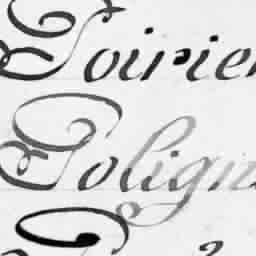 Poirier
Polign